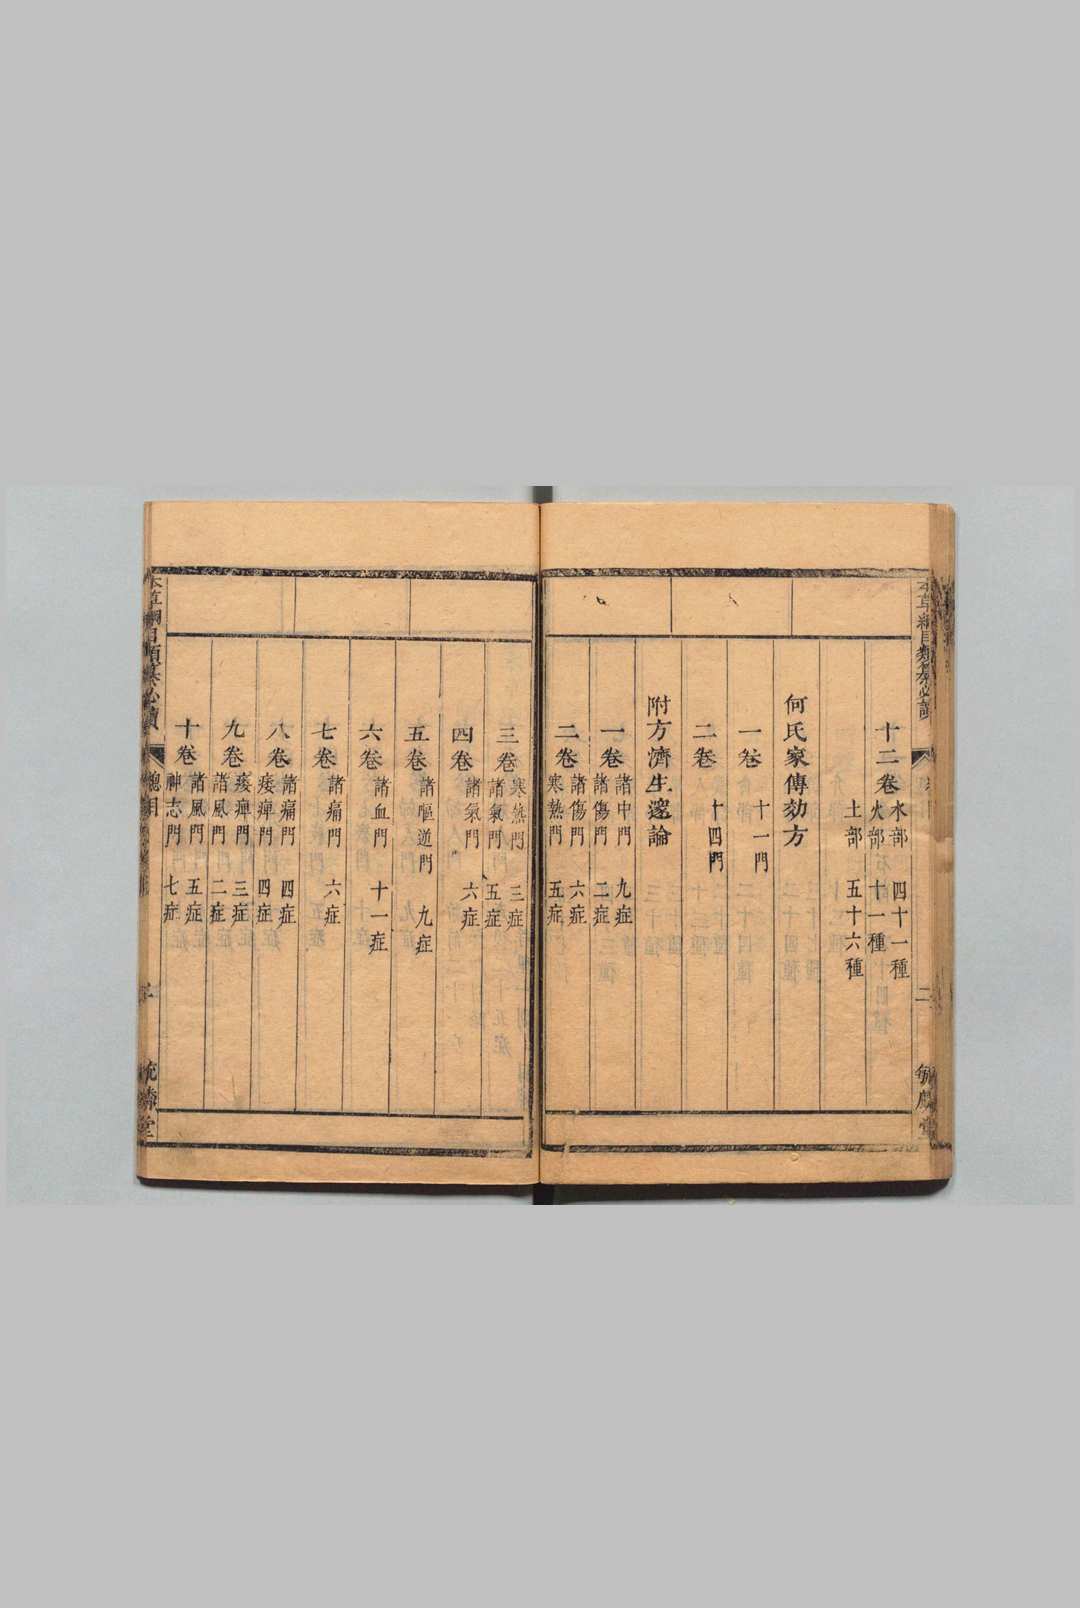 十二卷
水部 四十一種
火部 十一種
土部 五十六種
何氏家傳効方
一卷 十一門
二卷 十四門
附方濟生邃論
一卷
諸中門 九症
諸傷門 二症
二卷
諸傷門 六症
寒熱門 五症
三卷
寒熱門 三症
諸氣門 五症
四卷 諸氣門 六症
五卷 諸嘔逆門 九症
六卷 諸血門 十一症
七卷 諸痛門 六症
八卷
諸痛門 四症
痿痺門 四症
九卷
痿痺門 三症
諸風門 二症
十卷
諸風門 五症
神志門 七症
本草綱目類纂必讀
總目